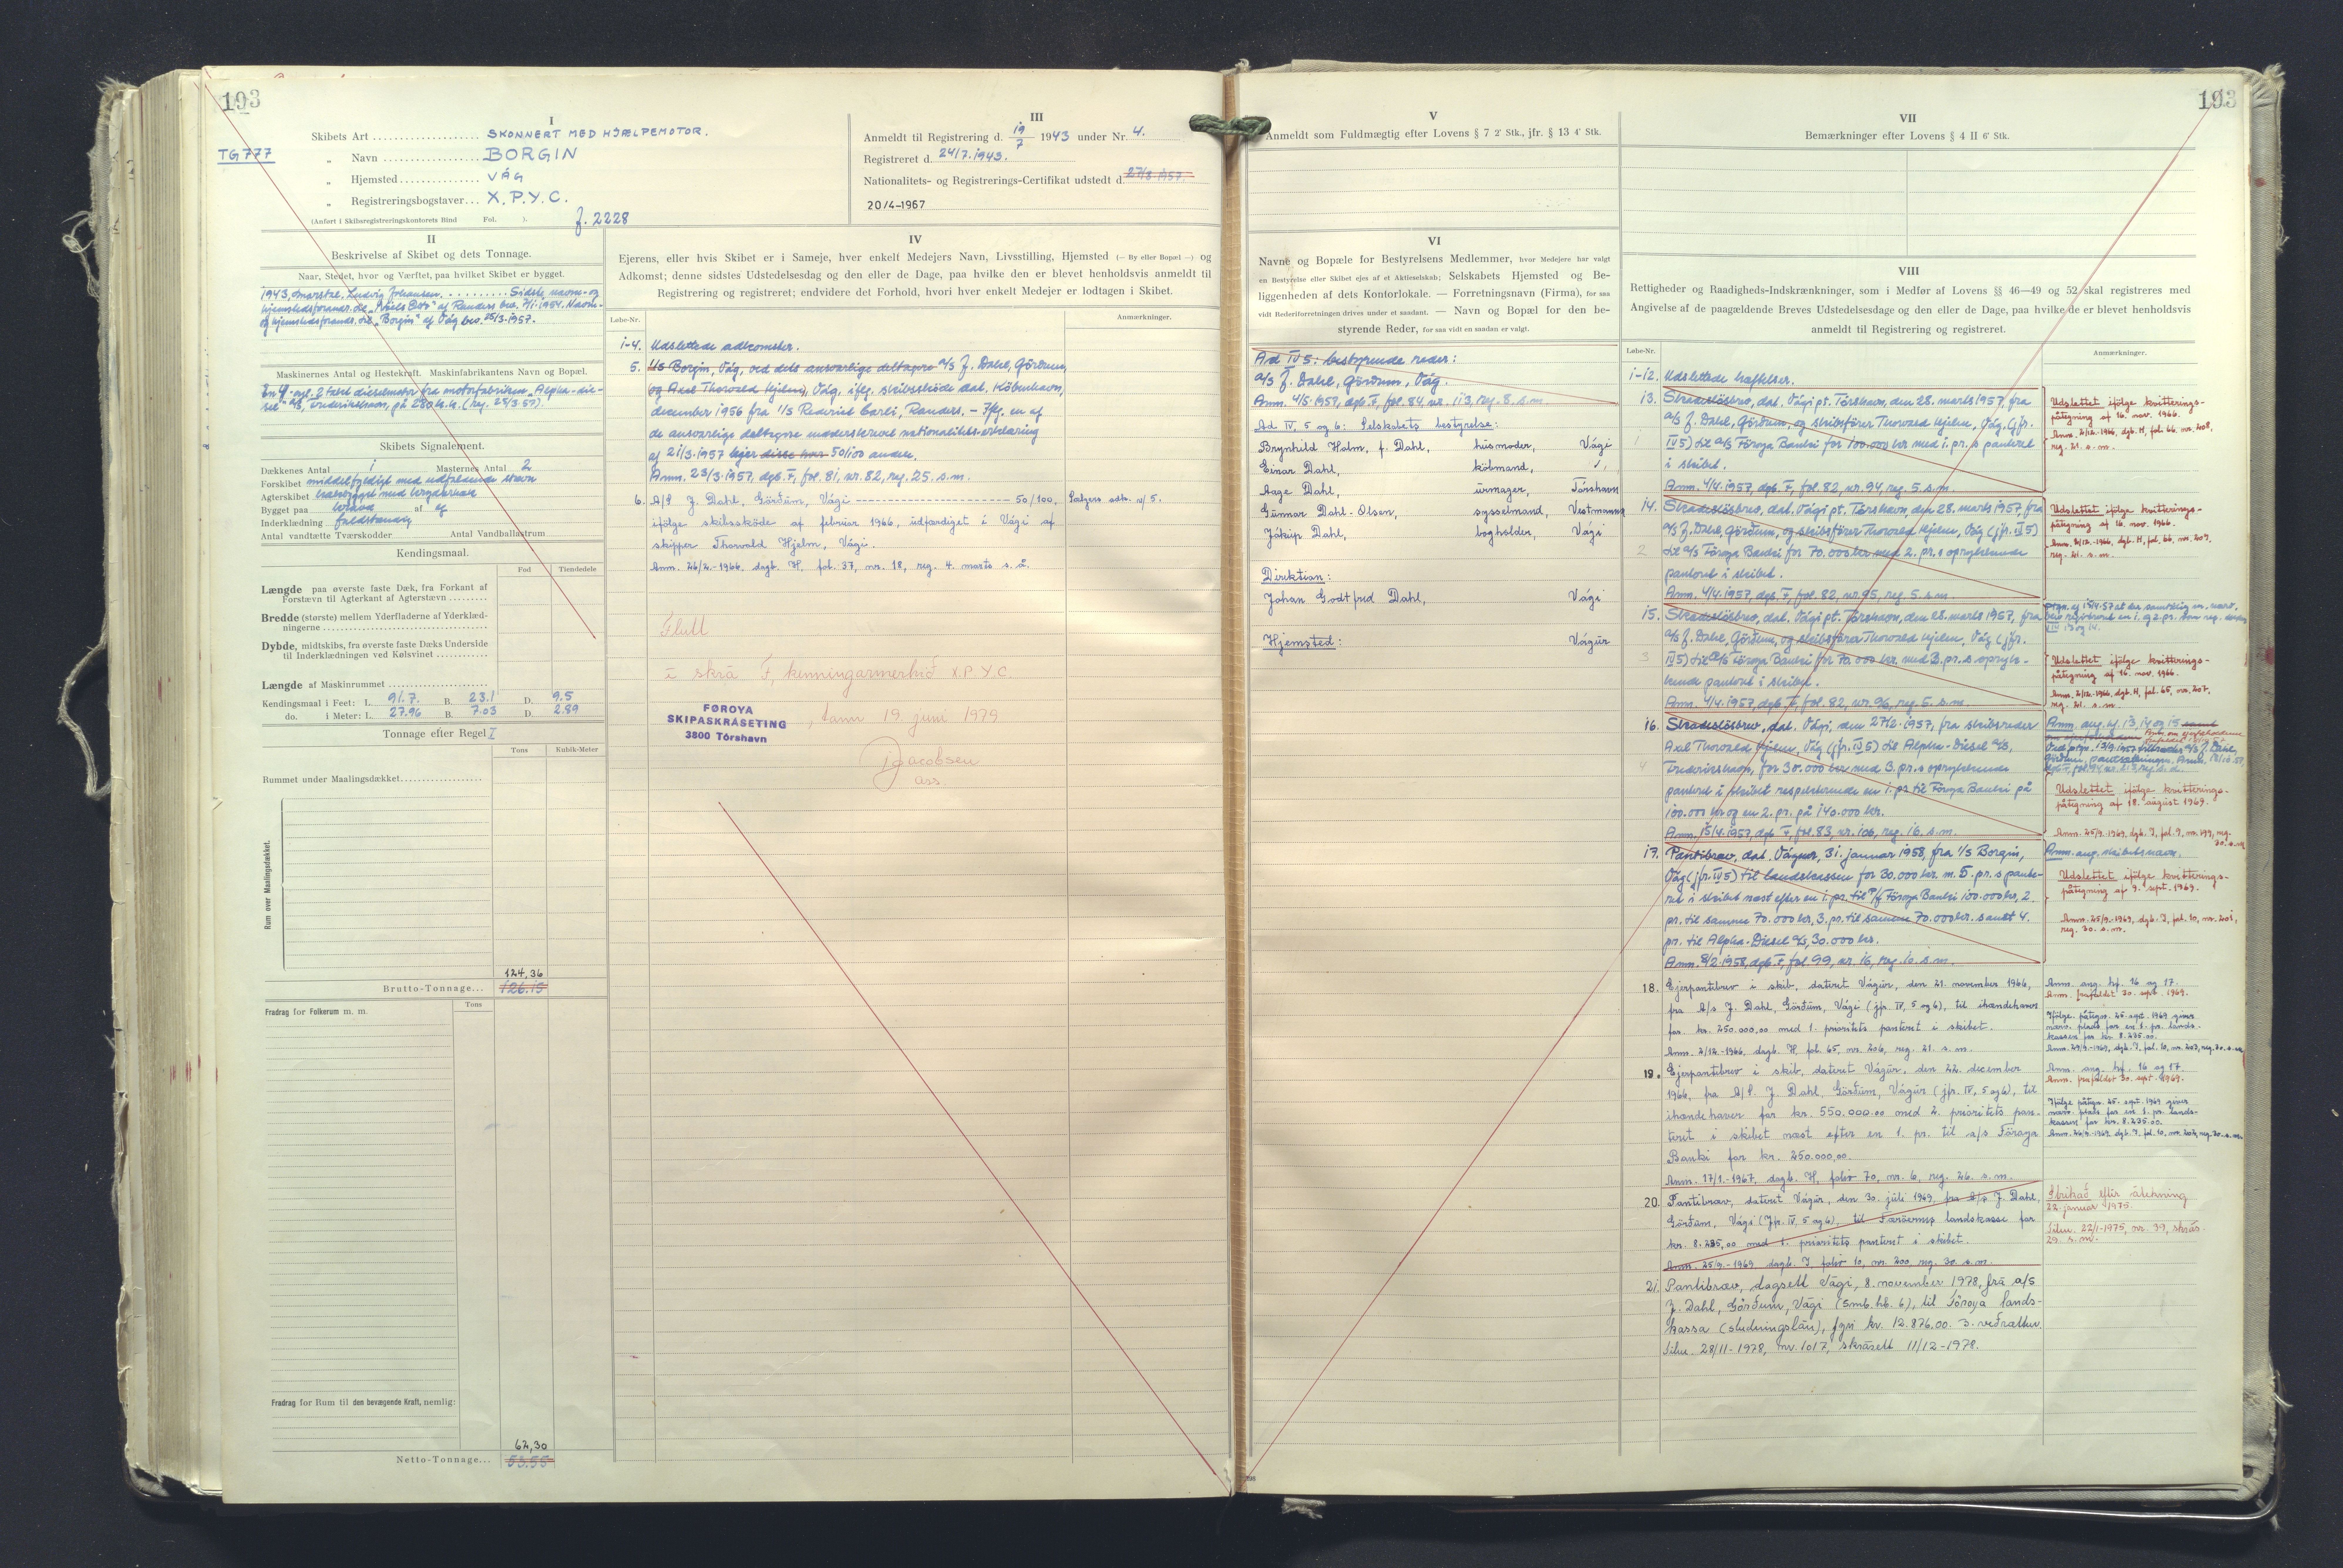 193
I
Skibets Art SKONNERT MED HJÆLPEMOTOR.
TG 777
„ Navn BORGIN
„ Hjemsted VÁG
„ Registreringsbogstaver... X.P.Y.C.
(Anført i Skibsregistreringskontorets Bind Fol. ).
f. 2228
III
Anmeldt til Registrering d. 19/7 1943 under Nr. 4.
Registreret d. 24/7.1943.
Nationalitets- og Registrerings-Certifikat udstedt d. 27/8 1957.
20/4-1967
II
Beskrivelse af Skibet og dets Tonnage.
Naar, Stedet, hvor og Værftet, paa hvilket Skibet er bygget.
1943, Marstal, Ludvig Johansen. Sidste navn- og
og hjemstedsforandr. til „Borgin“ af Våg bev. 25/3-1957.
Maskinernes Antal og Hestekraft. Maskinfabrikantens Navn og Bopæl.
En 4-cyl. 2 takt dieselmotor fra motorfabriken „Alpha-die-
sel“ a/s, Frederikshavn, på 280 h.k. (reg. 25/3.57).
Skibets Signalement.
Dækkenes Antal 1 Masternes Antal 2
Forskibet middelfyldigt med udfaldende stævn
Agterskibet
Bygget paa kravel af eg
Inderklædning fuldstændig
Antal vandtætte Tværskodder Antal Vandballastrum
Kendingsmaal.
Fod Tiendedele
Længde paa øverste faste Dæk, fra Forkant af
Forstævn til Agterkant af Agterstævn
Bredde (største) mellem Yderfladerne af Yderklæd-
ningerne
Dybde, midtskibs, fra øverste faste Dæks Underside
til Inderklædningen ved Kølsvinet
Længde af Maskinrummet
Kendingsmaal i Feet: L. 91.7. B. 23.1 D. 9.5
do. i Meter: L. 27.96 B. 7.03 D. 2.89
Tonnage efter Regel I
Tons Kubik-Meter
Rummet under Maalingsdækket
Rum over Maalingsdækket.
124,36
Brutto-Tonnage... 126.15
Tons
Fradrag for Folkerum m. m.
Fradrag for Rum til den bevægende Kraft, nemlig:
62,30
Netto-Tonnage... 53.55
IV
Ejerens, eller hvis Skibet er i Sameje, hver enkelt Medejers Navn, Livsstilling, Hjemsted (— By eller Bopæl —) og
Adkomst; denne sidstes Udstedelsesdag og den eller de Dage, paa hvilke den er blevet henholdsvis anmeldt til
Registrering og registreret; endvidere det Forhold, hvori hver enkelt Medejer er lodtagen i Skibet.
Løbe-Nr. Anmærkninger.
1-4. Udslettede adkomster.
5. I/S Borgin, Våg, ved dets ansvarlige deltagere a/s J. Dahl, Görðum,
og Axel Thorvald Hjelm, Våg, iflg. skibsskøde dat. København,
december 1956 fra I/S Rederiet Carli, Randers. - Iflg. en af
de ansvarlige deltagere underskrevet nationalitets-erklæring
af 21/3-1957 ejer disse hver 50/100 anden.
Anm. 23/3-1957, dgb. F, fol. 81, nr. 82, reg. 25. s.m.
6. A/S J. Dahl, Görðum, Vági - 50/100, Sælgers adk. a/ 5.
ifølge skibsskøde af februar 1966, udfærdiget i Vági af
skipper Thorvald Hjelm, Vági.
Anm. 26/2-1966, dagb. H, fol. 37, nr. 18, reg. 4. marts s. å.
Flutt
í skrá F, kenningarmerkið X.P.Y.C.
FØROYA
SKIPASKRÁSETING
3800 Tórshavn
, tann 19. juni 1979
Jacobsen
ass.
V
Anmeldt som Fuldmægtig efter Lovens § 7 2' Stk., jfr. § 13 4' Stk.
VI
Navne og Bopæle for Bestyrelsens Medlemmer, hvor Medejere har valgt
en Bestyrelse eller Skibet ejes af et Aktieselskab; Selskabets Hjemsted og Be-
liggenheden af dets Kontorlokale. — Forretningsnavn (Firma), for saa
vidt Rederiforretningen drives under et saadant. — Navn og Bopæl for den be-
styrende Reder, for saa vidt en saaden er valgt.
Ad IV 5: bestyrende reder:
a/s J. Dahl, Görðum, Våg.
Anm. 4/5-1957, dgb. F, fol. 84, nr. 113, reg. 8. s.m.
Ad IV, 5 og 6: Selskabets bestyrelse:
Brynhild Holm, f. Dahl, husmoder, Vági
Einar Dahl, købmand, „
Aage Dahl, urmager, Tórshavn
Gunnar Dahl-Olsen, sysselmand, Vestmanna
Jákup Dahl, bogholder, Vági
Direktion:
Johan Godtfred Dahl, Vági
Hjemsted: Vágur
193
VII
Bemærkninger efter Lovens § 4 II 6' Stk.
VIII
Rettigheder og Raadigheds-Indskrænkninger, som i Medfør af Lovens §§ 46—49 og 52 skal registreres med
Angivelse af de paagældende Breves Udstedelsesdage og den eller de Dage, paa hvilke de er blevet henholdsvis
anmeldt til Registrering og registreret.
Løbe-Nr. Anmærkninger.
1-12. Udslettede hæftelser.
13. Skadesløsbrev, dat. Vági pt. Tórshavn, den 28. marts 1957, fra
a/s J. Dahl, Görðum, og skibsfører Thorvald Hjelm, Våg, (jfr.
IV 5) til a/s Föroya Banki for 100.000 kr. med 1. pr.s panteret
i skibet.
Anm. 4/4.1957, dgb. F, fol. 82, nr. 94, reg. 5. s.m.
Udslettet ifølge kvitterings-
påtegning af 16. nov. 1966.
Anm. 2/12.-1966, dgb. H, fol. 66, nr. 208,
reg. 21. s.m.
14. Skadesløsbrev, dat. Vági pt. Tórshavn, den 28. marts 1957, fra
a/s J. Dahl, Görðum, og skibsfører Thorvald Hjelm, Våg (jfr. IV 5)
til a/s Föroya Banki for 70.000 kr. med 2. pr.s oprykkende
panteret i skibet.
Anm. 4/4.1957, dgb. F, fol. 82, nr. 95, reg. 5. s.m.
Udslettet ifølge kvitterings-
påtegning af 16. nov. 1966.
reg. 21. s.m.
15. Skadesløsbrev, dat. Vági pt. Tórshavn, den 28. marts 1957, fra
a/s J. Dahl, Görðum, og skibsfører Thorvald Hjelm, Våg (jfr.
IV 5) til a/s Föroya Banki for 70.000 kr. med 3. pr.s opryk-
kende panteret i skibet.
Anm. 4/4.1957, dgb. F, fol. 82, nr. 96, reg. 5. s.m.
Udslettet ifølge kvitterings-
påtegning af 16. nov. 1966.
Anm. 2/12.-1966, dgb. H, fol. 65, nr. 207,
reg. 21. s.m.
16. Skadesløsbrev, dat. Vági, den 27/2.1957, fra skibsreder
Axel Thorvald Hjelm, Våg (jfr. IV 5) til Alpha-Diesel a/s,
Frederikshavn, for 30.000 kr. med 3. pr.s oprykkende
panteret i skibet respekterende en 1. pr. til Föroya Banki på
100.000 kr. og en 2. pr. på 140.000 kr.
Anm. 15/4.1957, dgb. F, fol. 83, nr. 106, reg. 16. s.m.
Udslettet ifølge kvitterings-
påtegning af 18. august 1969.
Anm. 25/9.-1969, dgb. I, fol. 9, nr. 199, reg.
30. s.m.
17. Pantibrev, dat. Vágur, 31. januar 1958, fra I/S Borgin,
Våg (jfr. IV 5) til landskassen for 30.000 kr. m. 5. pr.s pante-
ret i skibet næst efter en 1. pr. til P/f Föroya Banki 100.000 kr, 2.
pr. til samme 70.000 kr, 3. pr. til samme 70.000 kr. samt 4.
pr. til Alpha-Diesel a/s, 30.000 kr.
Anm. 8/2.1958, dgb. F, fol. 99, nr. 16, reg. 10. s.m.
Anm. ang. skibets navn.
Udslettet ifølge kvitterings-
påtegning af 9. sept. 1969.
Anm. 25/9.-1969, dgb. I, fol. 10, nr. 201,
reg. 30. s.m.
18. Ejerpantibrev i skib, dateret Vágur, den 21. november 1966,
fra A/S J. Dahl, Görðum, Vági (jfr. IV, 5 og 6), til ihændehaver
for kr. 250.000,00 med 1. prioritets panteret i skibet.
Anm. 2/12.-1966, dagb. H, fol. 65, nr. 206, reg. 21. s.m.
Anm. ang. hf. 16 og 17.
Anm. frafaldet 30. sept. 1969.
Ifølge påtegn. 25. sept. 1969 gives
nærv. plads for en 1. pr. lands-
kassen for kr. 8.235.00.
19. Ejerpantibrev i skib, dateret Vágur, den 22. december
1966, fra A/S J. Dahl, Görðum, Vágur (jfr. IV, 5 og 6), til
ihændehaver for kr. 550.000.00 med 2. prioritets pan-
teret i skibet næst efter en 1. pr. til a/s Föroya
Banki for kr. 250.000,00.
Anm. 17/1.-1967, dagb. H, folio 70, nr. 6, reg. 26. s.m.
Anm. ang. hf. 16 og 17.
Anm. frafaldet 30. sept. 1969.
Ifølge påtegn. 25. sept. 1969 gives
nærv. plads for en 1. pr. lands-
kassen for kr. 8.235.00.
20. Pantibrev, dateret Vágur, den 30. juli 1969, fra A/S J. Dahl,
Görðum, Vági (jfr. IV, 5 og 6), til Færøernes landskasse for
kr. 8.235,00 med 1. prioritets panteret i skibet.
Anm. 25/9.-1969 dagb. I, folio 10, nr. 200, reg. 30. s.m.
Strikað eftir átekning
22. januar 1975.
Tilm. 22/1-1975, nr. 39, skrás.
29. s.m.
21. Pantibræv, dagsett Vági, 8. november 1978, frá a/s
J. Dahl, Görðum, Vági (smb. hb. 6), til Föroya lands-
kassa (studningslán), fyri kr. 12.876.00. 3. veðrættur.
Tilm. 28/11-1978, nr. 1017, skrásett 11/12-1978.